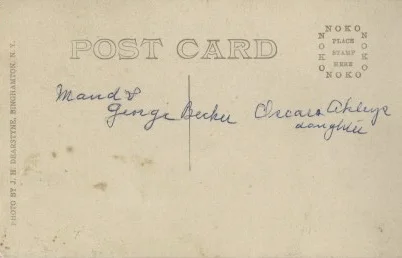 NOKO
NOKO
PLACE
STAMP
HERE
NOKO
NOKO
POST CARD
Maud &
George Becker
Oscars Akleys
daughter
PHOTO BY J. H. DEARSTYNE, BINGHAMTON, N. Y.